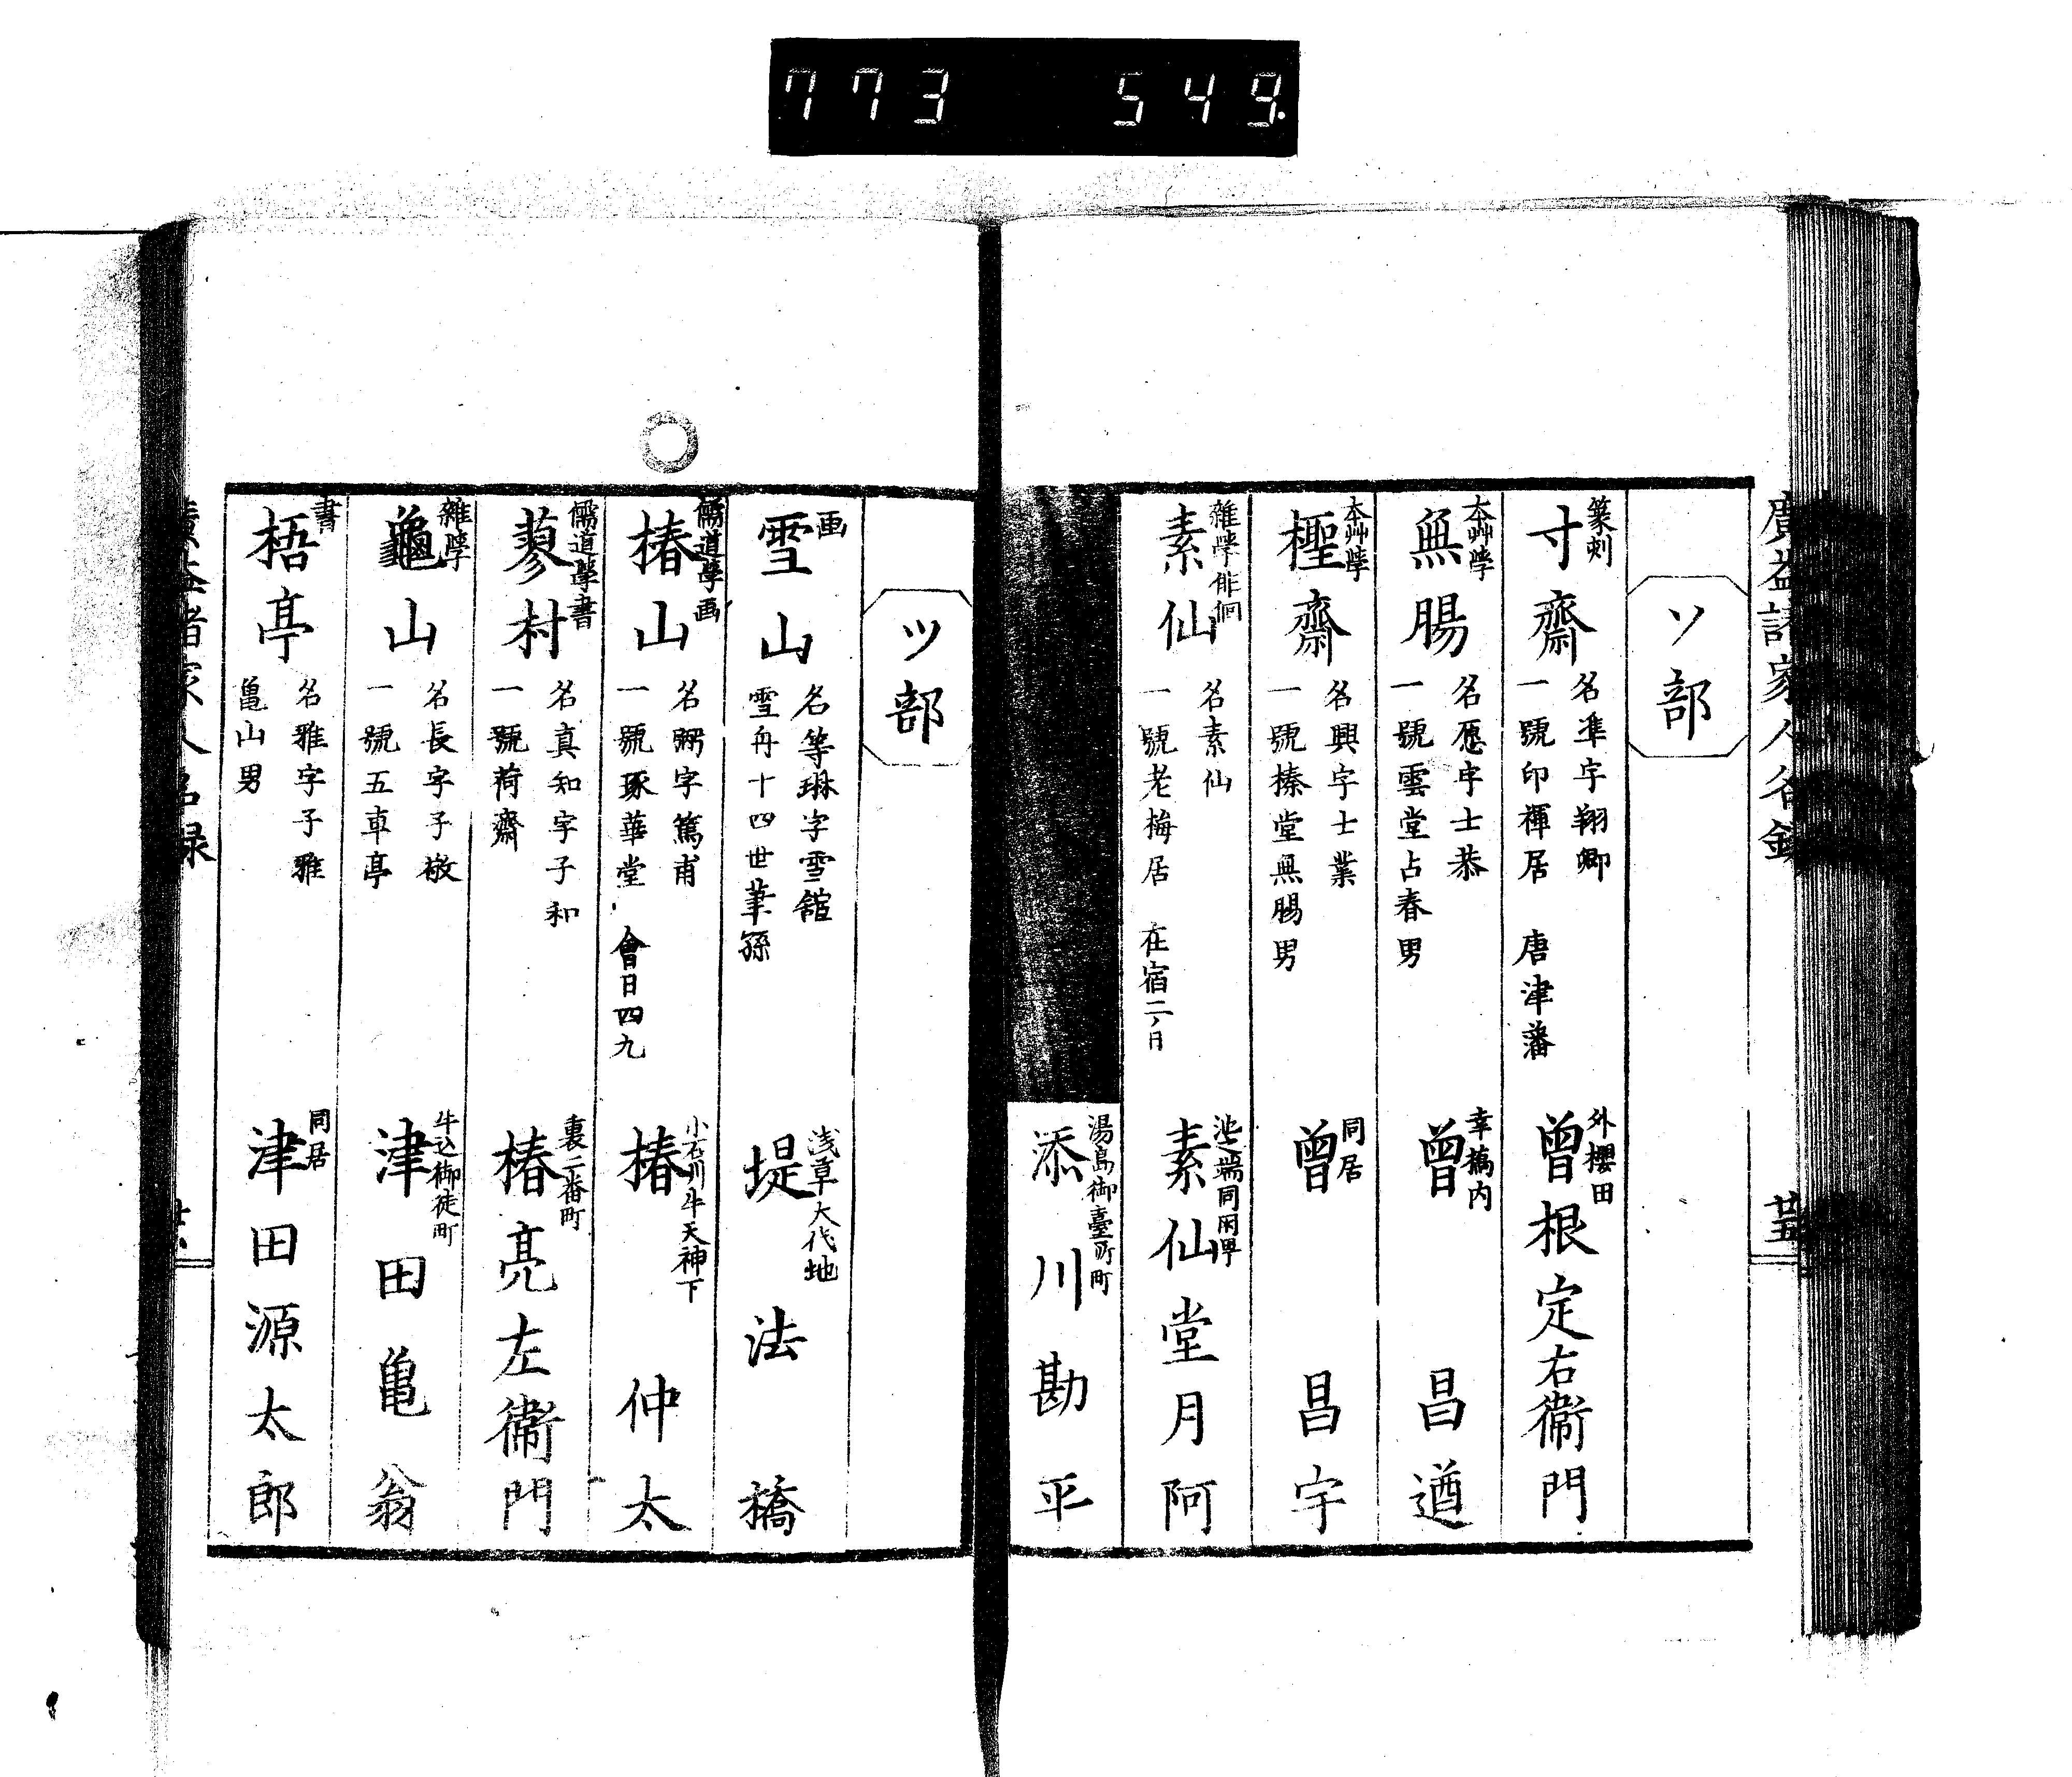 773 549
廣益諸家人名録
ソ部
篆刻
寸齋
名準字翔卿
一號印禪居 唐津藩
外櫻田
曾根定右衞門
本艸學
無腸
名愿字士恭
一號雲堂占春男
幸橋内
曾昌遒
本艸學
檉齋
名興字士業
一號榛堂無腸男
同居
曾昌宇
雜學俳徊
素仙
名素仙
一號老梅居 在宿二ノ日
池之端同朋町
素仙堂月阿
湯島御臺所町
添川勘平
廿五
ツ部
画
雪山
名等琳字雪舘
雪舟十四世筆孫
浅草大代地
堤法橋
儒道學画
椿山
名弼字篤甫
一號琢華堂 會日四九
小石川牛天神下
椿仲太
儒道學書
蓼村
名真知字子和
一號荷齋
裏二番町
椿亮左衞門
雜學
龜山
名長字子敬
一號五車亭
牛込御徒町
津田亀翁
書
梧亭
名雅字子雅
亀山男
同居
津田源太郎